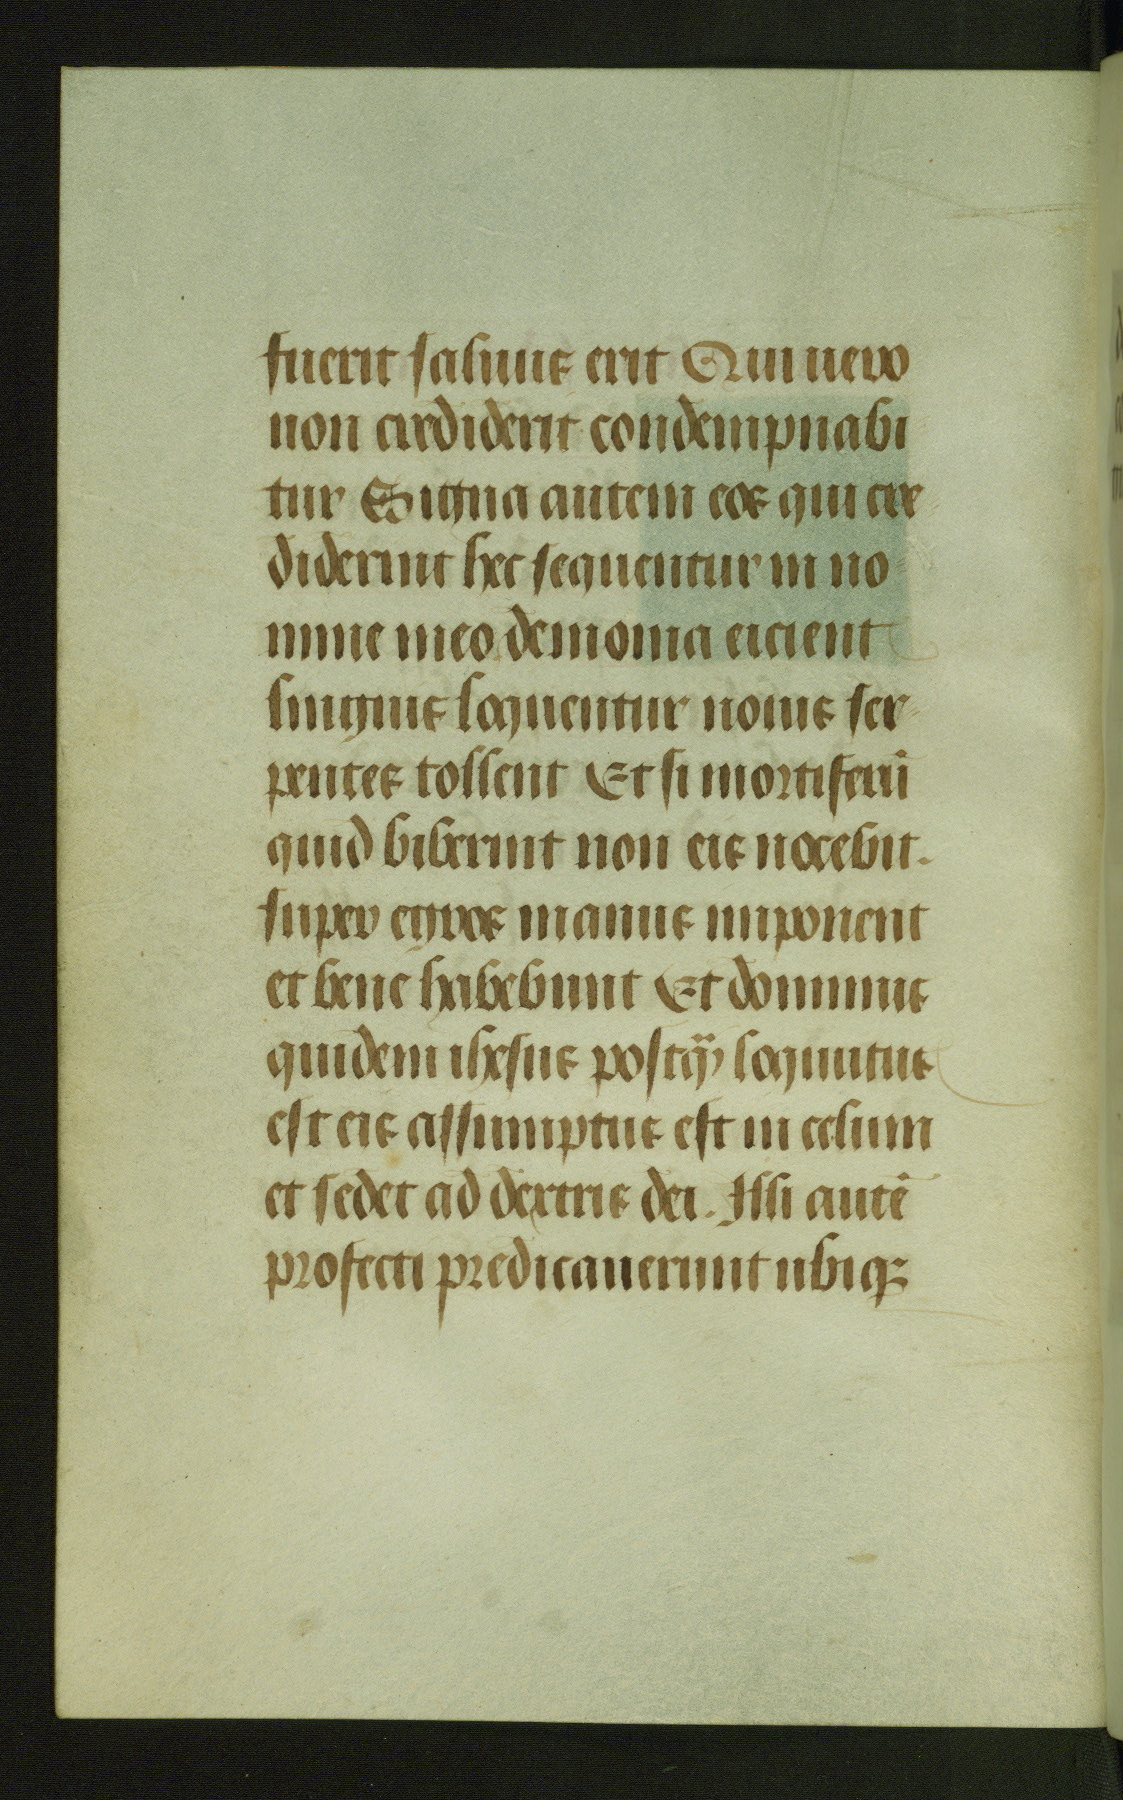 fuerit saluus erit Qui uero
non crediderit condempnabi
tur Signa autem eos qui cre
diderint hec sequentur in no
mine meo demonia eicient
linguis loquentur nouis ser
pentes tollent Et si mortiferũ
quid biberint non eis nocebit.
super egros manus imponent
et bene habebunt Et dominus
quidem ihesus postq̃ loquutus
est eis assumptus est in celum
et sedet ad dextris dei. Illi autẽ
profecti predicauerunt ubiqꝫ